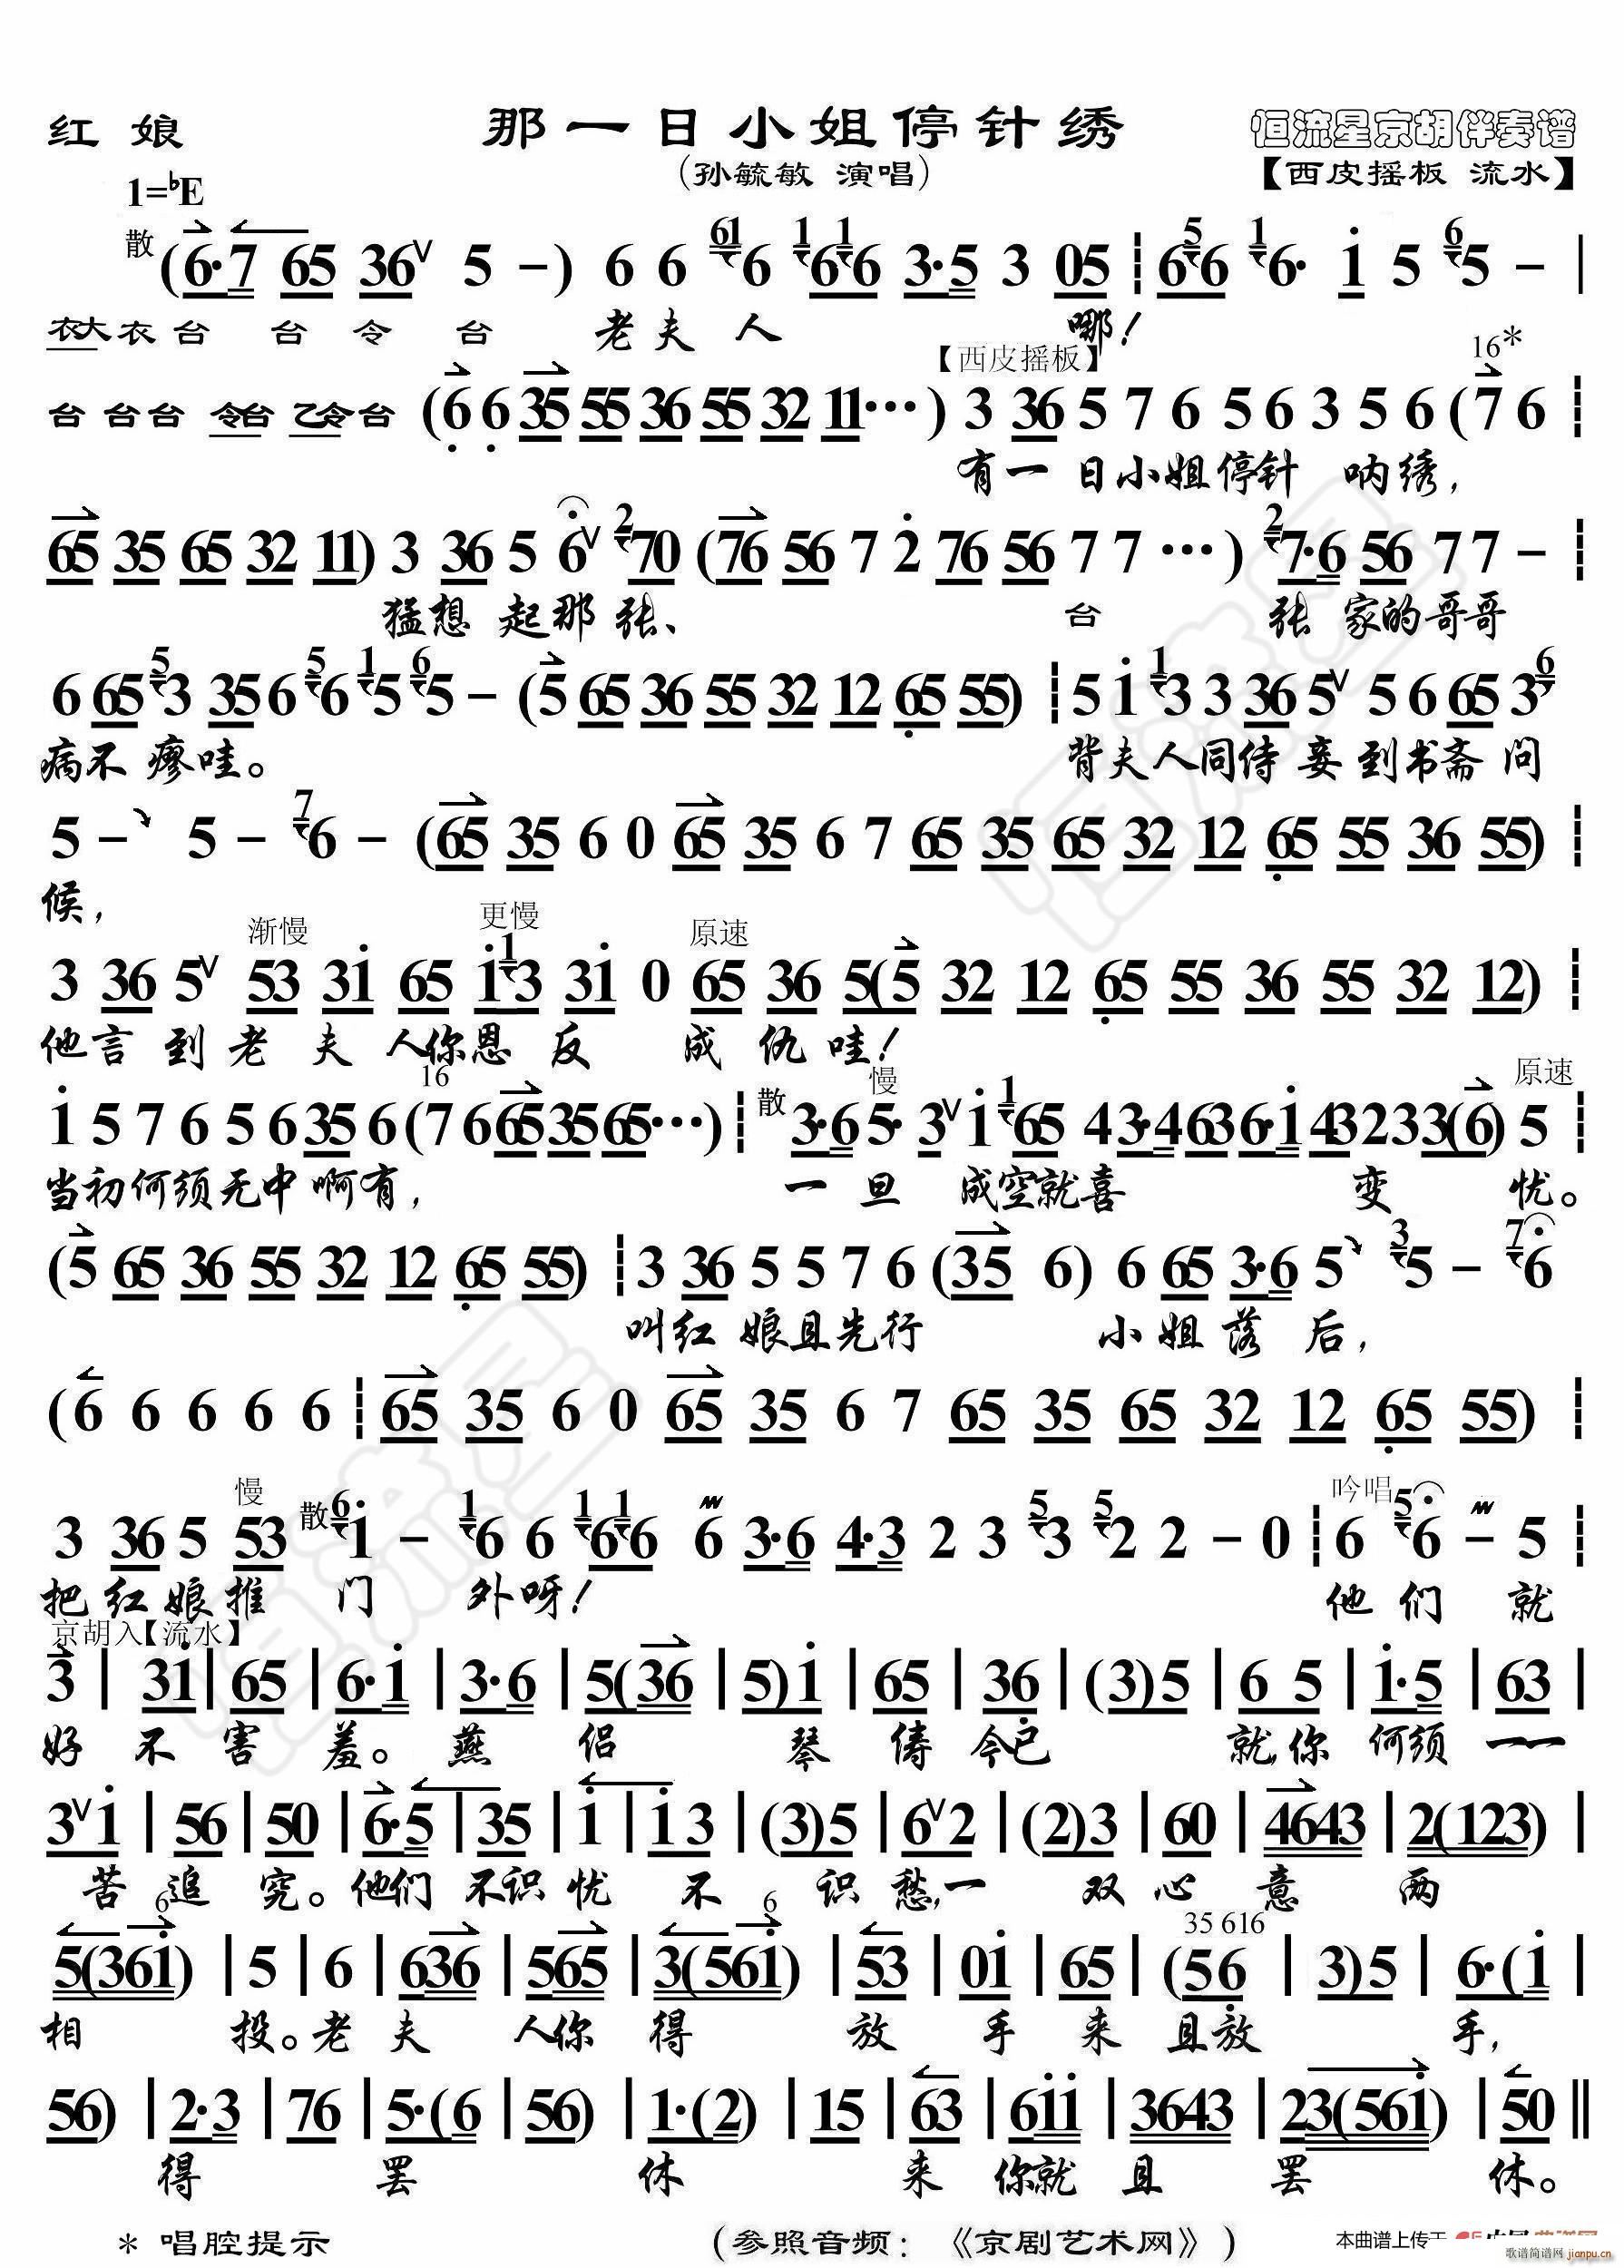 红 娘 那一日小姐停针绣 恒流星京胡伴奏谱
(孙毓敏 演唱) 【西皮摇板 流水】
1=♭E
散 (6·7 65 36 ∨ 5 -) 6 6 61 6 1 6 1 6 3·5 3 05 ┆ 6 5 6 1 6· i 5 6 5 - |
衣大衣 台 台 令 台 老夫人 哪!
【西皮摇板】 16*
台 台台 令台 乙令台 (6 6 35 55 36 55 32 11···) 3 36 5 7 6 5 6 3 5 6 (7 6 ┆
有一日小姐停针 呐绣,
65 35 65 32 11) 3 36 5 6 ∨ 2 70 (76 56 7 2 76 56 7 7 ···) 2 7·6 56 7 7 - ┆
猛想起那张、 台 张家的哥哥
6 65 5 3 35 6 5 6 1 5 6 5 - (5 65 36 55 32 12 65 55) ┆ 5 i 1 3 3 36 5 ∨ 5 6 65 3 6
病不瘳哇。 背夫人同侍妾到书斋问
5 - 5 - 7 6 - (65 35 6 0 65 35 6 7 65 35 65 32 12 65 55 36 55) ┆
候,
渐慢 更慢 原速
3 36 5 ∨ 53 3i 65 i 1 3 3i 0 65 36 5(5 32 12 65 55 36 55 32 12) ┆
他言到老夫人你恩反 成仇哇!
16 慢 原速
i 5 7 6 5 6 35 6 (7 6 65 35 65···) ┆ 散 3·6 5· 3 ∨ i 1 65 4 3·4 63 6·i 43 2 3 3 (6) 5 ┆
当初何须无中啊有, 一旦 成空就喜 变 忧。
(5 65 36 55 32 12 65 55) ┆ 3 36 5 5 7 6 (35 6) 6 65 3·6 5 3 5 - 7 6
叫红娘且先行 小姐落后,
(6 6 6 6 6 ┆ 65 35 6 0 65 35 6 7 65 35 65 32 12 65 55) ┆
慢 吟唱
3 36 5 53 散 6 i - 1 6 6 1 6 1 6 6 3·6 4·3 2 3 5 3 5 2 2 - 0 ┆ 6 5 6 - 5 ┆
把红娘推门 外呀! 他们 就
京胡入【流水】
3 | 3i | 65 | 6·i | 3·6 | 5(36 | 5)i | 65 | 36 | (3)5 | 6 5 | i·5 | 63 |
好不害羞。燕侣 琴俦今已 就,你何须一一
3 ∨ i | 56 | 50 | 6·5 | 35 | i | i 3 | (3)5 | 6 ∨ 2 | (2)3 | 60 | 4643 | 2(123) |
苦追究。他们不识忧不 识愁,一 双心意两
6 6 35 616
5(36i) | 5 | 6 | 636 | 565 | 3(56i) | 53 | 0i | 65 | (56 | 3)5 | 6·(i |
相 投。老夫 人你得 放手来且放 手,
56) | 2·3 | 76 | 5·(6 | 56) | 1·(2) | 15 | 63 | 6ii | 3643 | 23(56i) | 50 ‖
得 罢 休 来你就且罢 休。
* 唱腔提示 (参照音频:《京剧艺术网》) 本曲谱上传于
歌谱简谱网 jianpu.cn
恒流星
恒流星